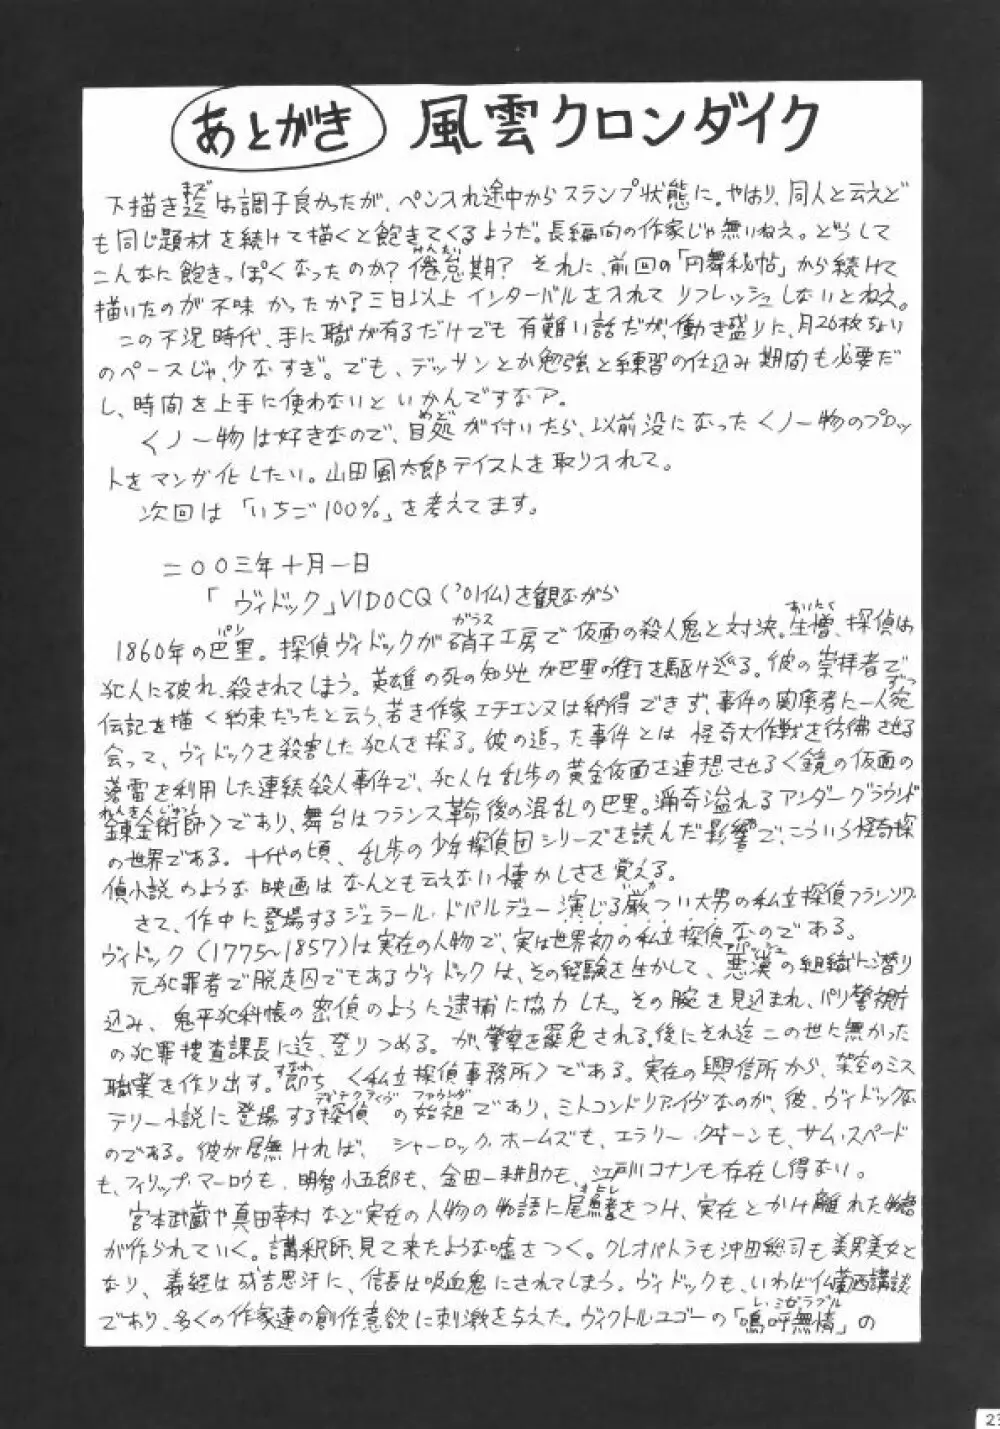 あとがき 風雲クロンダイク
下描き迄は調子良かったが、ペン入れ途中からスランプ状態に。やはり、同人と云えど
も同じ題材を続けて描くと飽きてくるようだ。長編向の作家じゃ無いねえ。どうして
こんなに飽きっぽくなったのか?倦怠期? それに、前回の「円舞秘帖」から続けて
描いたのが不味かったか?三日以上インターバルを入れてリフレッシュしないとねえ。
この不況時代、手に職が有るだけでも有難い話だが、働き盛りに、月20枚ちょい
のペースじゃ、少なすぎ。でも、デッサンとか勉強と練習の仕込み期間も必要だ
し、時間を上手に使わないといかんですなァ。
くノ一物は好きなので、目処が付いたら、以前没になったくノ一物のプロッ
トをマンガ化したい。山田風太郎テイストを取り入れて。
次回は「いちご100%」を考えてます。
二〇〇三年十月一日
「ヴィドック」VIDOCQ('01仏)を観ながら
1860年の巴里。探偵ヴィドックが硝子工房で仮面の殺人鬼と対決。生憎、探偵は
犯人に破れ、殺されてしまう。英雄の死の知らせが巴里の街を駆け巡る。彼の崇拝者で
伝記を描く約束だったと云う、若き作家エチエンヌは納得できず、事件の関係者に一人宛
会って、ヴィドックを殺害した犯人を探る。彼の追った事件とは 怪奇大作戦を彷彿させる
落雷を利用した連続殺人事件で、犯人は乱歩の黄金仮面を連想させる〈鏡の仮面の
錬金術師〉であり、舞台はフランス革命後の混乱の巴里。猟奇溢れるアンダーグラウンド
の世界である。十代の頃、乱歩の少年探偵団シリーズを読んだ影響で、こういう怪奇探
偵小説のような映画はなんとも云えない懐かしさを覚える。
さて、作中に登場するジェラール・ドパルデュー演じる厳つい大男の私立探偵フランソワ・
ヴィドック(1775~1857)は実在の人物で、実は世界初の私立探偵なのである。
元犯罪者で脱走囚でもあるヴィドックは、その経験を生かして、悪漢の組織に潜り
込み、鬼平犯科帳の密偵のように逮捕に協力した。その腕を見込まれ、パリ警視庁
の犯罪捜査課長に迄、登りつめる。が、警察を罷免される。後にそれ迄この世に無かった
職業を作り出す。即ち〈私立探偵事務所〉である。実在の興信所から、架空のミス
テリー小説に登場する探偵の始祖であり、ミトコンドリア・イヴなのが、彼、ヴィドックな
のである。彼が居無ければ、シャーロック・ホームズも、エラリー・クイーンも、サム・スペード
も、フィリップ・マーロウも、明智小五郎も、金田一耕助も、江戸川コナンも存在し得ない。
宮本武蔵や真田幸村など実在の人物の物語に尾鰭をつけ、実在とかけ離れた物語
が作られていく。講釈師、見て来たような嘘をつく。クレオパトラも沖田総司も美男美女と
なり、義経は成吉思汗に、信長は吸血鬼にされてしまう。ヴィドックも、いわば仏蘭西講談
であり、多くの作家達の創作意欲に刺激を与えた。ヴィクトル・ユゴーの「嗚呼無情」の
23